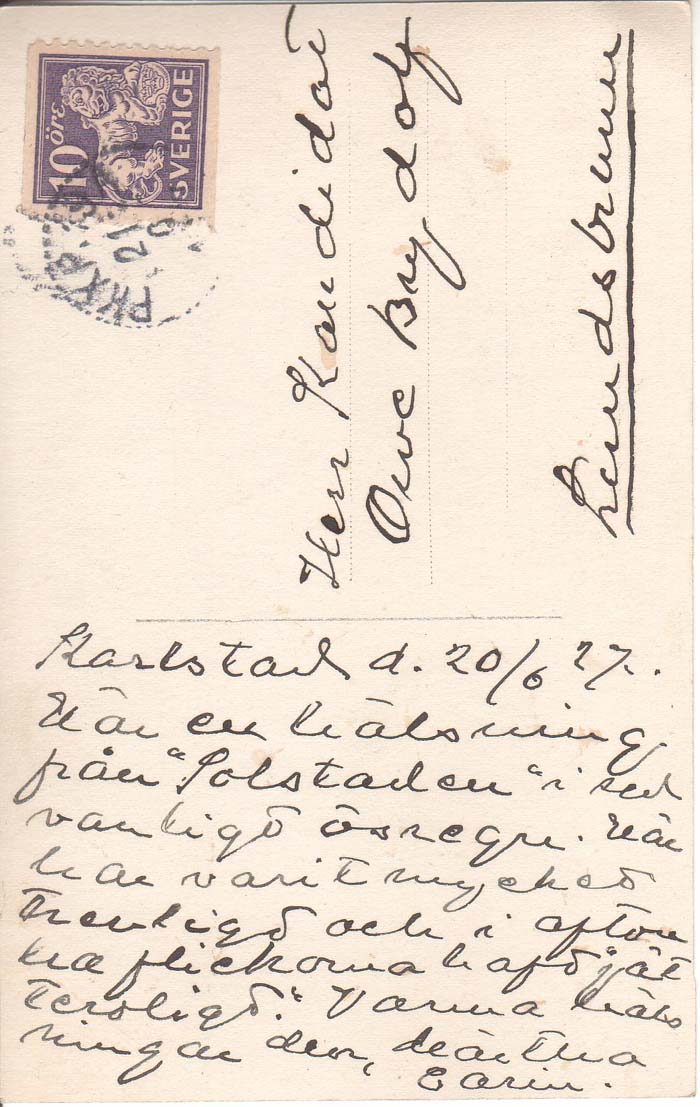 10 ÖRE
SVERIGE
PKXP
21
Herr Kandidat
Owe Brydolf
Lundsbrunn
Karlstad d. 20/6 27.
Här en hälsning
från "Solstaden" i sed
vanligt ösregn. Här
har varit mycket
trevligt och i afton
ha flickorna haft "jät
tersligt." Varma häls
ningar den, Märtha
Earin.